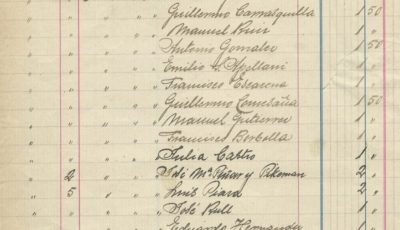 " " " " Guillermo Carrasquilla 1 50
" " " " Manuel Ruiz 1 "
" " " " Antonio Gonzalez 1 50
" " " " Emilio 1 "
" " " " Francisco Escarena 1 "
" " " " Guillermo 1 50
" " " " Manuel Gutierrez 1 "
" " " " Francisco Borbolla 1 "
" " " " Julia Castro 1 "
" 2 " " José Mª Piñar y 2 "
" 5 " " Luis Piard 2 "
" " " " José Rull 1 "
" " " " Eduardo Hernandez 1 "